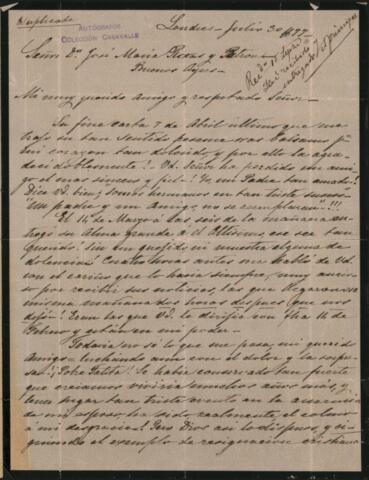 Duplicado
AUTÓGRAFOS
COLECCIÓN CARAVALLE
Londres - Julio 30/1877
Señor Dn. José María Roxas y Patron
Buenos Ayres
Mi muy querido Amigo y respetado Señor.
Su fina carta 7 de Abril último que me
trajo un tan sentido pesame, fue un balsamo pa.
mi corazon tan dolorido, y por ella la agra-
decí doblemente! Vd. Señor ha perdido un ami-
go el mas sincero y fiel! Yo, mi Padre tan amado!
Dice Vd. bien, somos hermanos en tan triste suceso
"Un padre y un Amigo, no se reemplazan"!!!
El 14 de Marzo á las seis de la mañana en-
tregó su Alma grande á el Altísimo, ese ser tan
querido! Sin un quejido, ni muestra alguna de
dolencia! Cuatro horas antes me habló de Vd.
con el cariño que lo hacia siempre, muy ancio-
so por recibir sus noticias, las que llegaron esa
misma mañana dos horas despues que nos
dejó! Eran las que Vd. le dirijió con fha 14 de
Febrero y están en mi poder.
Todavia no sé lo que me pasa, mi querido
Amigo - luchando aun con el dolor y la sorpre-
sa! Pobre Tatita! Se habia conservado tan fuerte
que creiamos viviria muchos años mas, y
tener lugar tan triste evento en la ausencia
de mi esposo, ha sido, realmente, el colmo
á mi desgracia! Pero Dios asi lo dispuso, y si-
guiendo el exemplo de resignacion cristiana